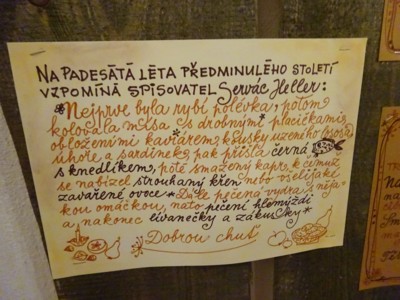 NA PADESÁTÁ LÉTA PŘEDMINULÉHO STOLETÍ
VZPOMÍNÁ SPISOVATEL Servác Heller:
*Nejprve byla rybí polévka, potom
kolovala mísa s drobnými placičkami,
obloženými kaviárem, kousky uzeného lososa,
úhoře a sardinek, pak přišla černá
s knedlíkem, poté smažený kapr, k čemuž
se nabízel strouhaný křen nebo oselijaké
zavařené ovoce * Dále pečená vydra s nija-
kou omáčkou, nato pečení hlemýždi
a nakonec lívanečky a zákusky*
Dobrou chuť